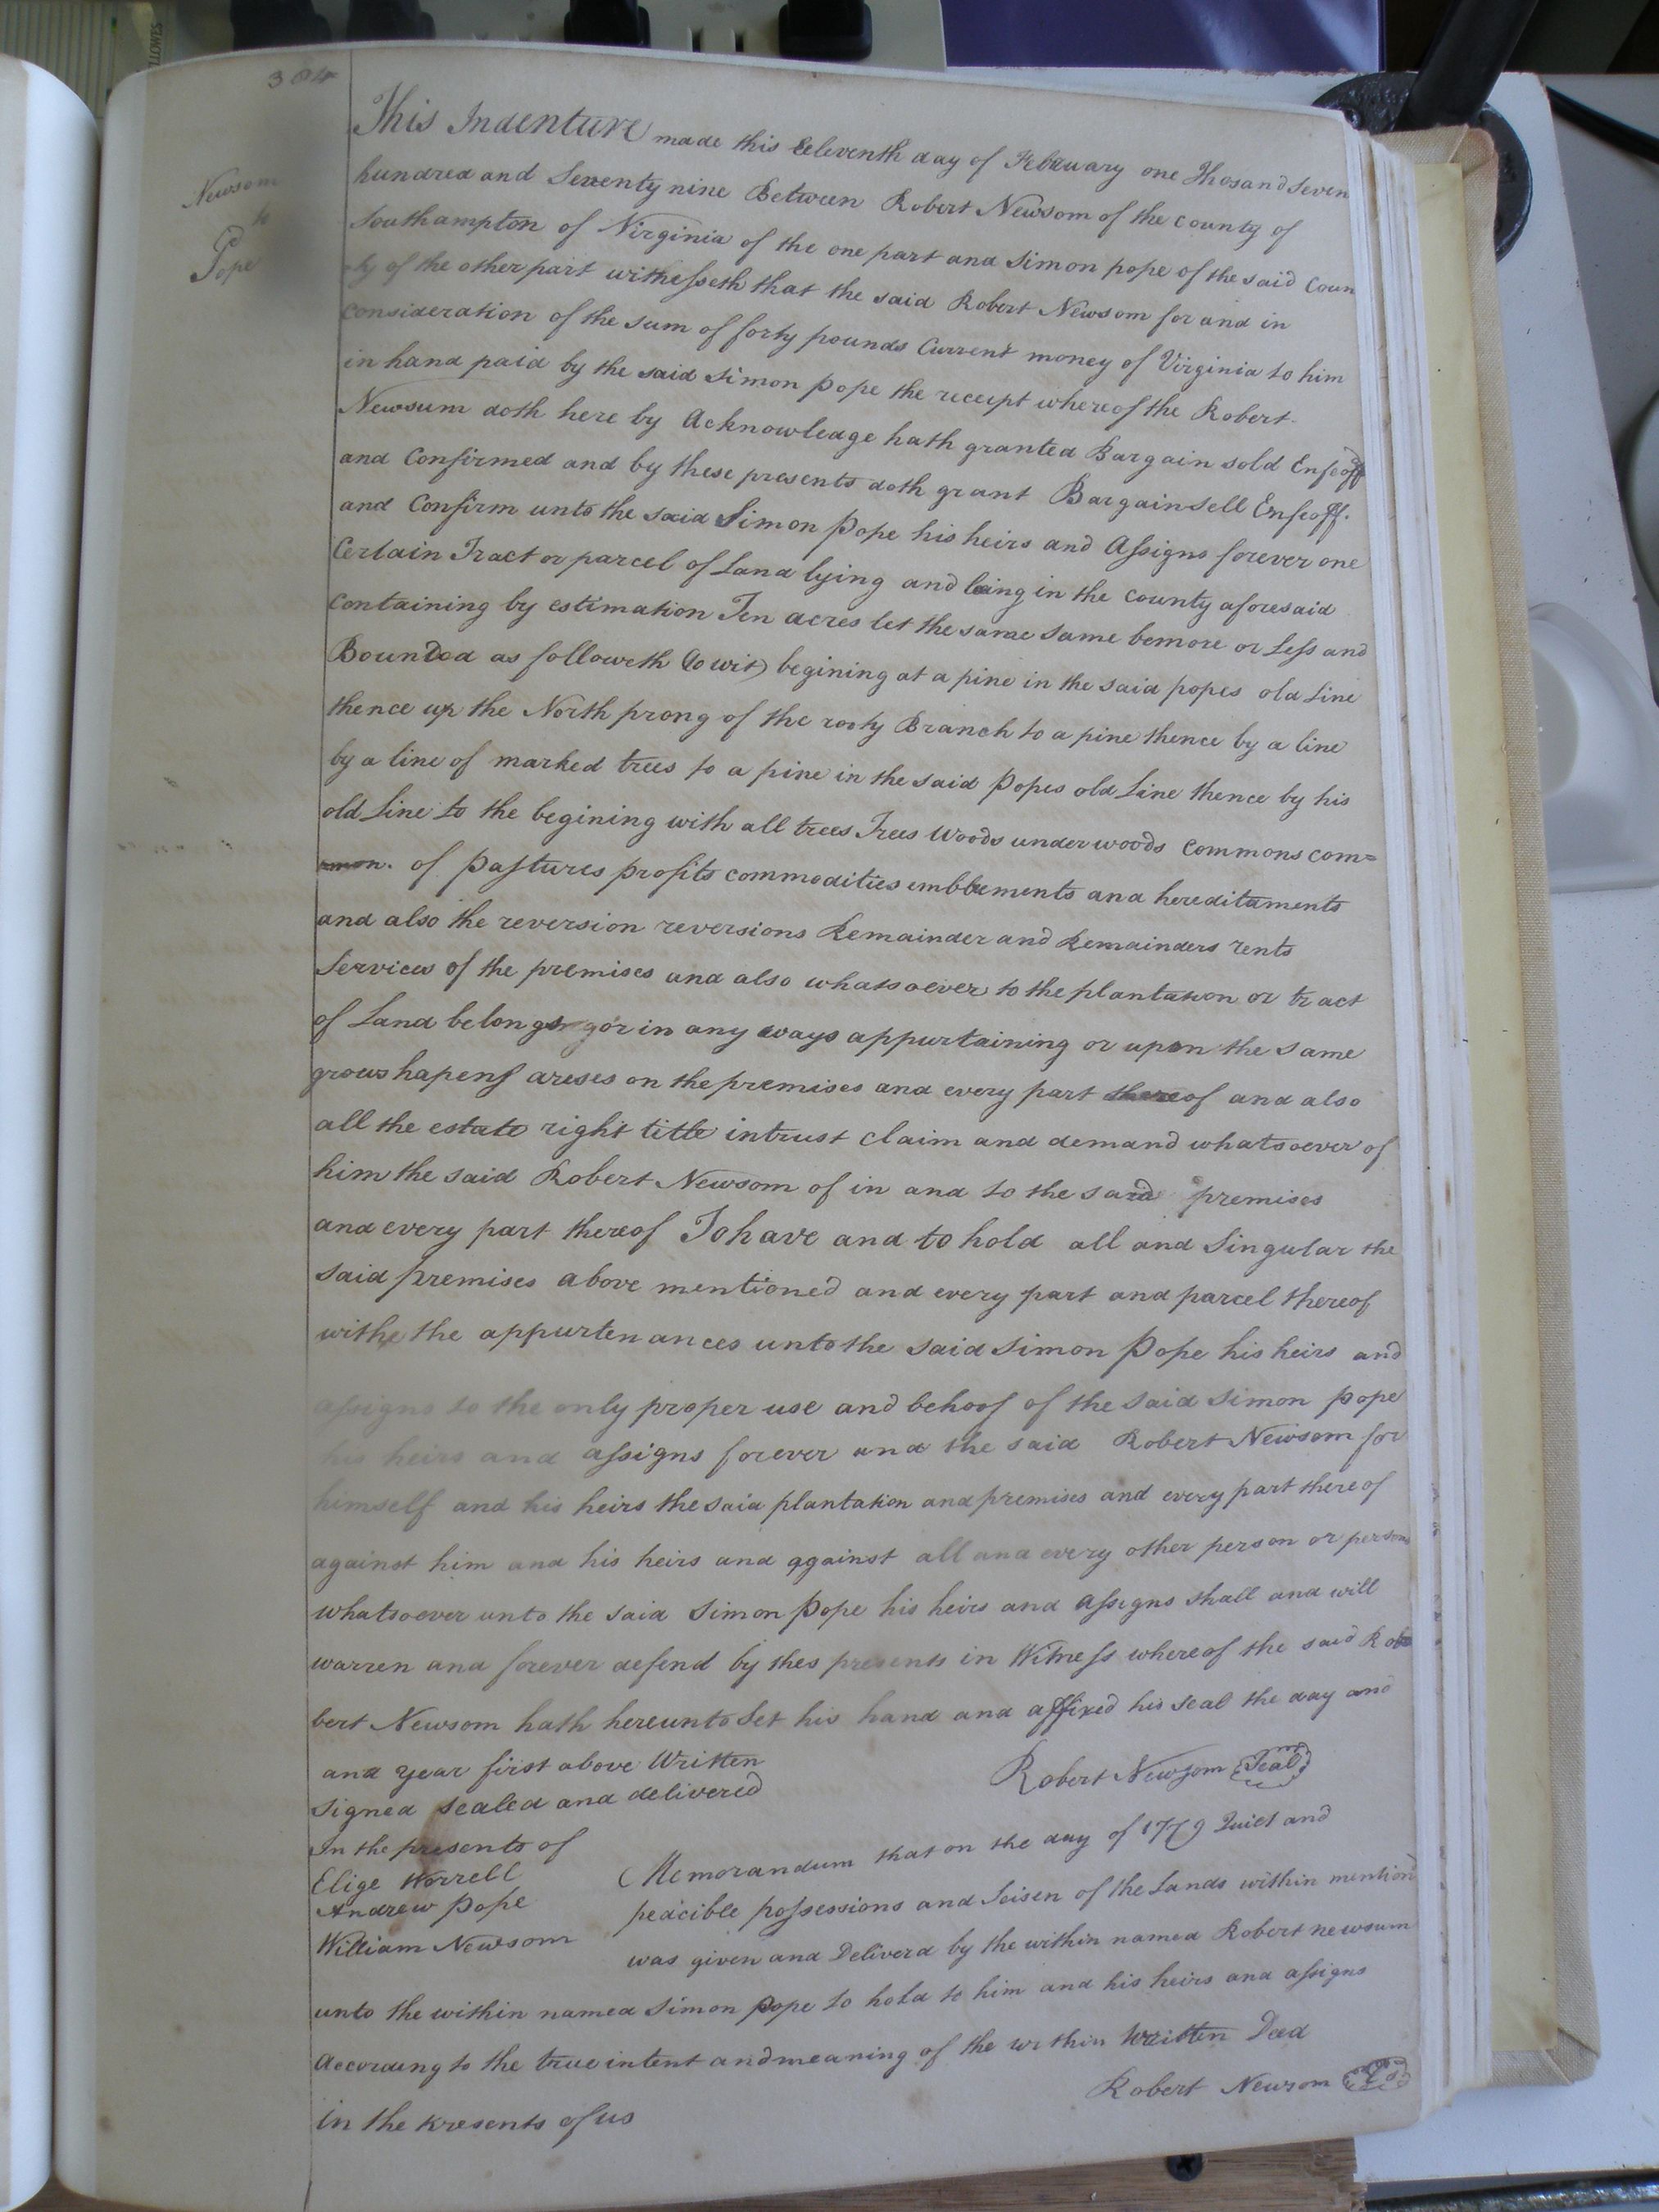 304
Newsom
to
Pope
This Indenture made this Eeleventh day of February one Thosand Seven
hundred and Seventy nine Between Robert Newsom of the county of
Southampton of Virginia of the one part and Simon pope of the said Coun
ty of the other part witnesseth that the said Robert Newsom for and in
Consideration of the sum of forty pounds Current money of Virginia to him
in hand paid by the said Simon pope the receipt whereof the Robert
Newsum doth here by Acknowledge hath granted Bargain sold Enfeoff
and Confirmed and by these presents doth grant Bargain sell Enfeoff.
and Confirm unto the said Simon Pope his heirs and Assigns forever one
Certain Tract or parcel of Land lying and being in the county aforesaid
Containing by estimation Ten acres let the same same be more or Less and
Bounded as followeth (to wit) begining at a pine in the said popes old Line
thence up the North prong of the rooty Branch to a pine thence by a line
by a line of marked trees to a pine in the said Popes old Line thence by his
old Line to the begining with all trees Trees Woods under woods Commons com=
mon. of pastures profits commodities emblements and hereditaments
and also the reversion reversions Remainder and Remainders rents
Services of the premises and also whatsoever to the plantation or tract
of Land belonging or in any ways appurtaining or upon the same
grows hapens areses on the premises and every part thereof and also
all the estate right title intrust claim and demand whatsoever of
him the said Robert Newsom of in and to the said premises
and every part thereof To have and to hold all and Singular the
said premises above mentioned and every part and parcel thereof
with the appurtenances unto the said Simon Pope his heirs and
assigns to the only proper use and behoof of the said Simon pope
his heirs and assigns forever and the said Robert Newsom for
himself and his heirs the said plantation and premises and every part there of
against him and his heirs and against all and every other person or persons
whatsoever unto the said Simon Pope his heirs and Assigns shall and will
warren and forever defend by thes presents in Witness whereof the said Ro
bert Newsom hath hereunto Set his hand and affixed his seal the day and
and year first above Written
Robert Newsom Seal
Signed Sealed and delivered
In the presents of
Elige Worrell
Andrew Pope
William Newsom
Memorandum that on the day of 1779 Quiet and
peacible possessions and Seisen of the Lands within mention
was given and Deliverd by the within named Robert newsum
unto the within named Simon pope to hold to him and his heirs and assigns
According to the true intent and meaning of the within Written Deed
Robert Newsom LS
in the presents of us